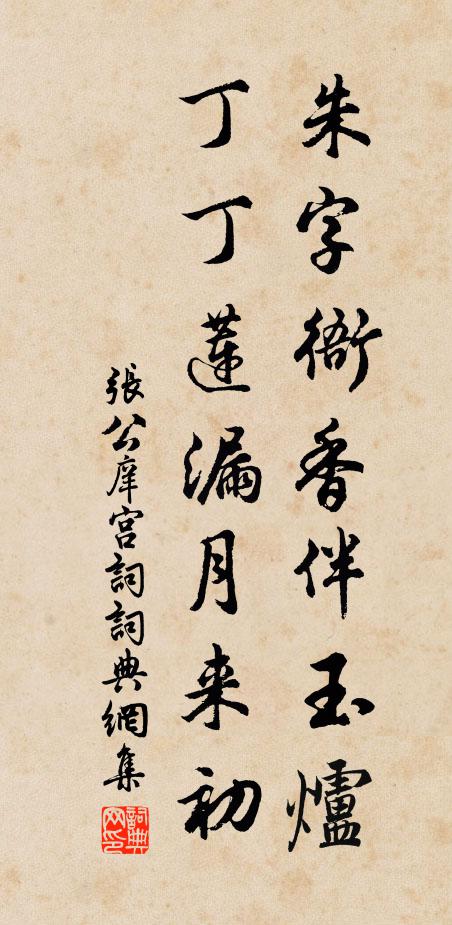 朱字衙香伴玉爐
丁丁蓮漏月来初
張公庠宮詞詞典網集
詞典网印